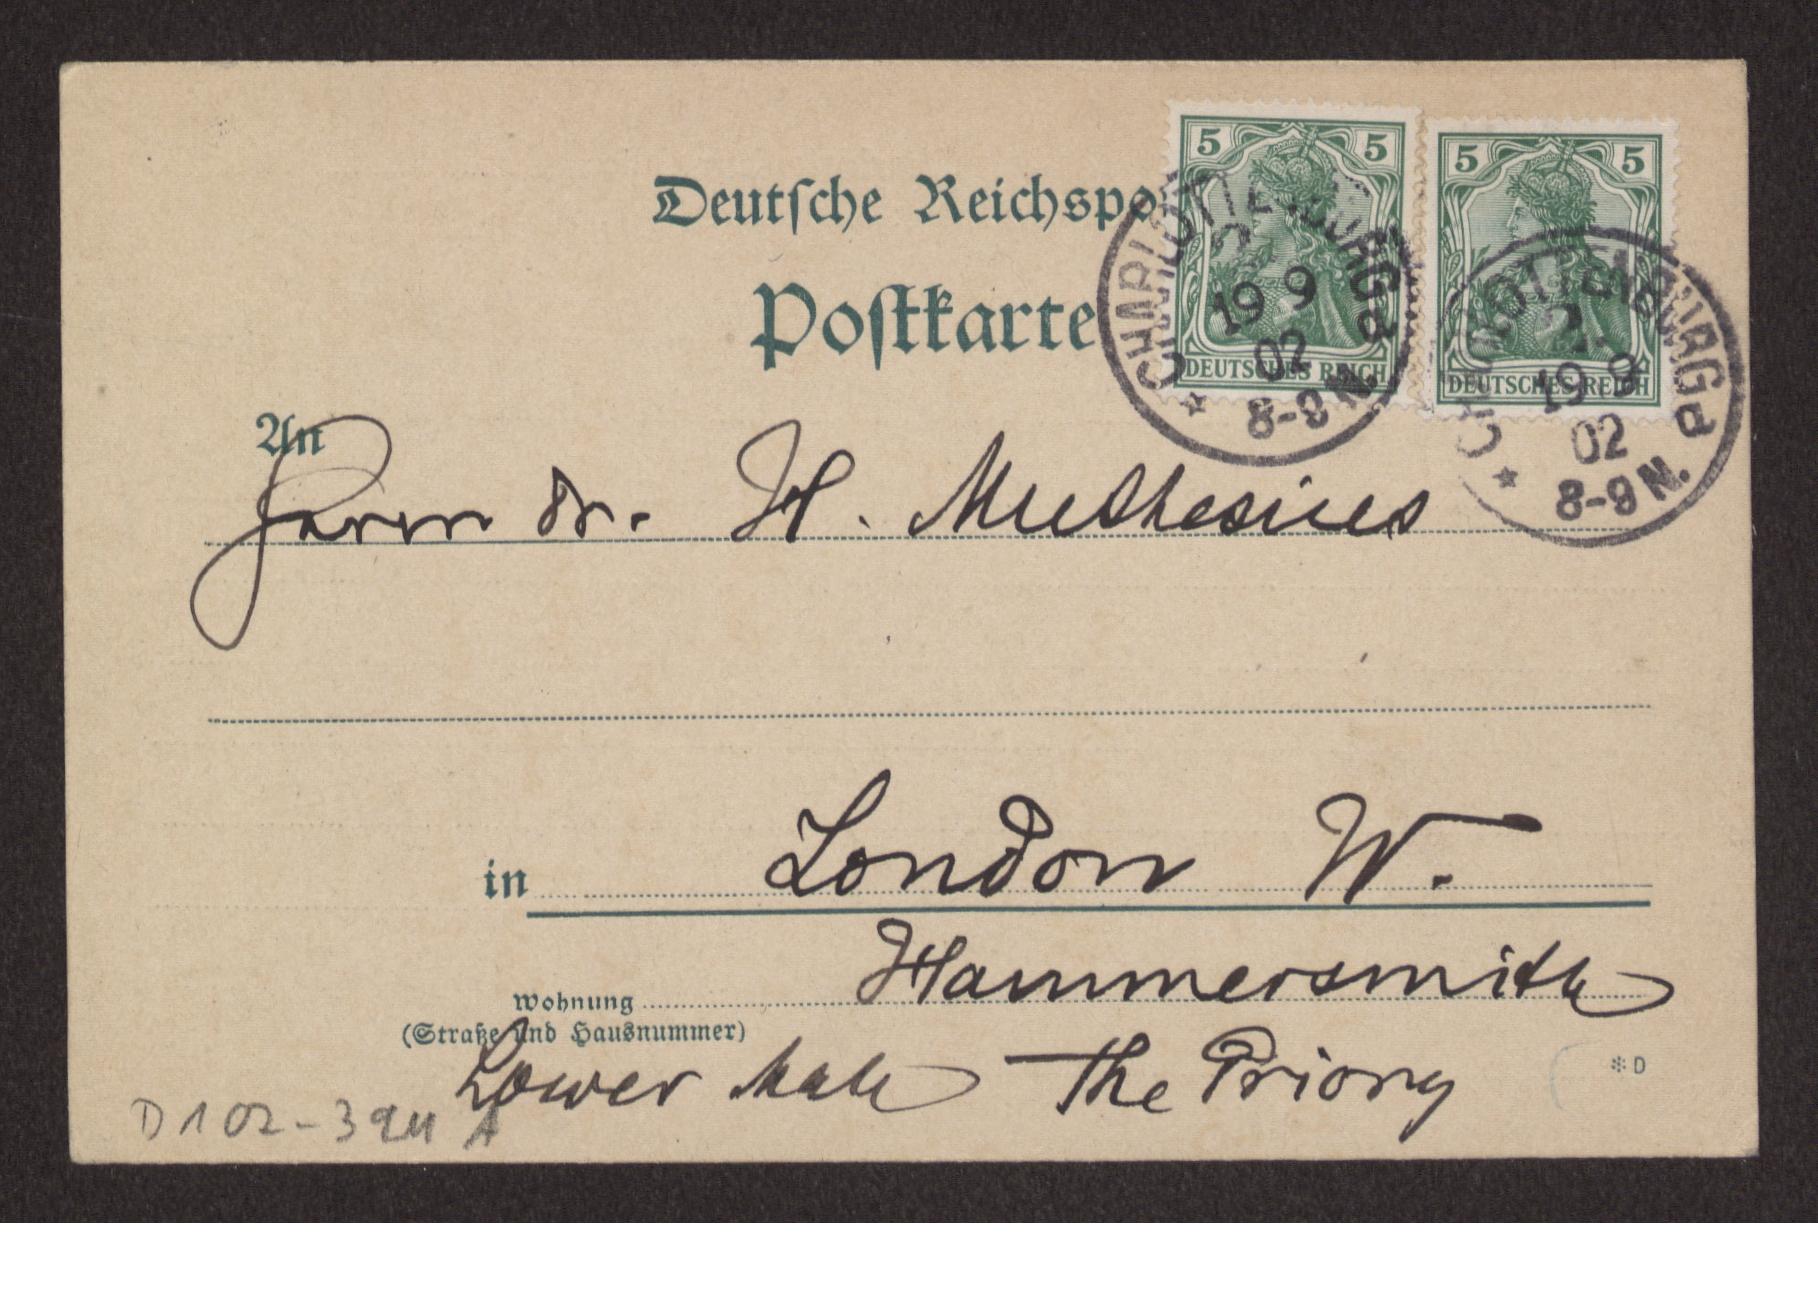 5 5
5 5
Deutsche Reichspo
Postkarte
DEUTSCHES REICH
DEUTSCHES REICH
CHARLOTTENBURG
2
19 9
02
8-9 N.
CHARLOTTENBURG
2
19 9
02
8-9 N.
An
Herrn Dr. H. Muthesius
in London W.
Hammersmith
Wohnung
(Straße und Hausnummer)
Lower Mall The Priory
*D
D 102-3911 A